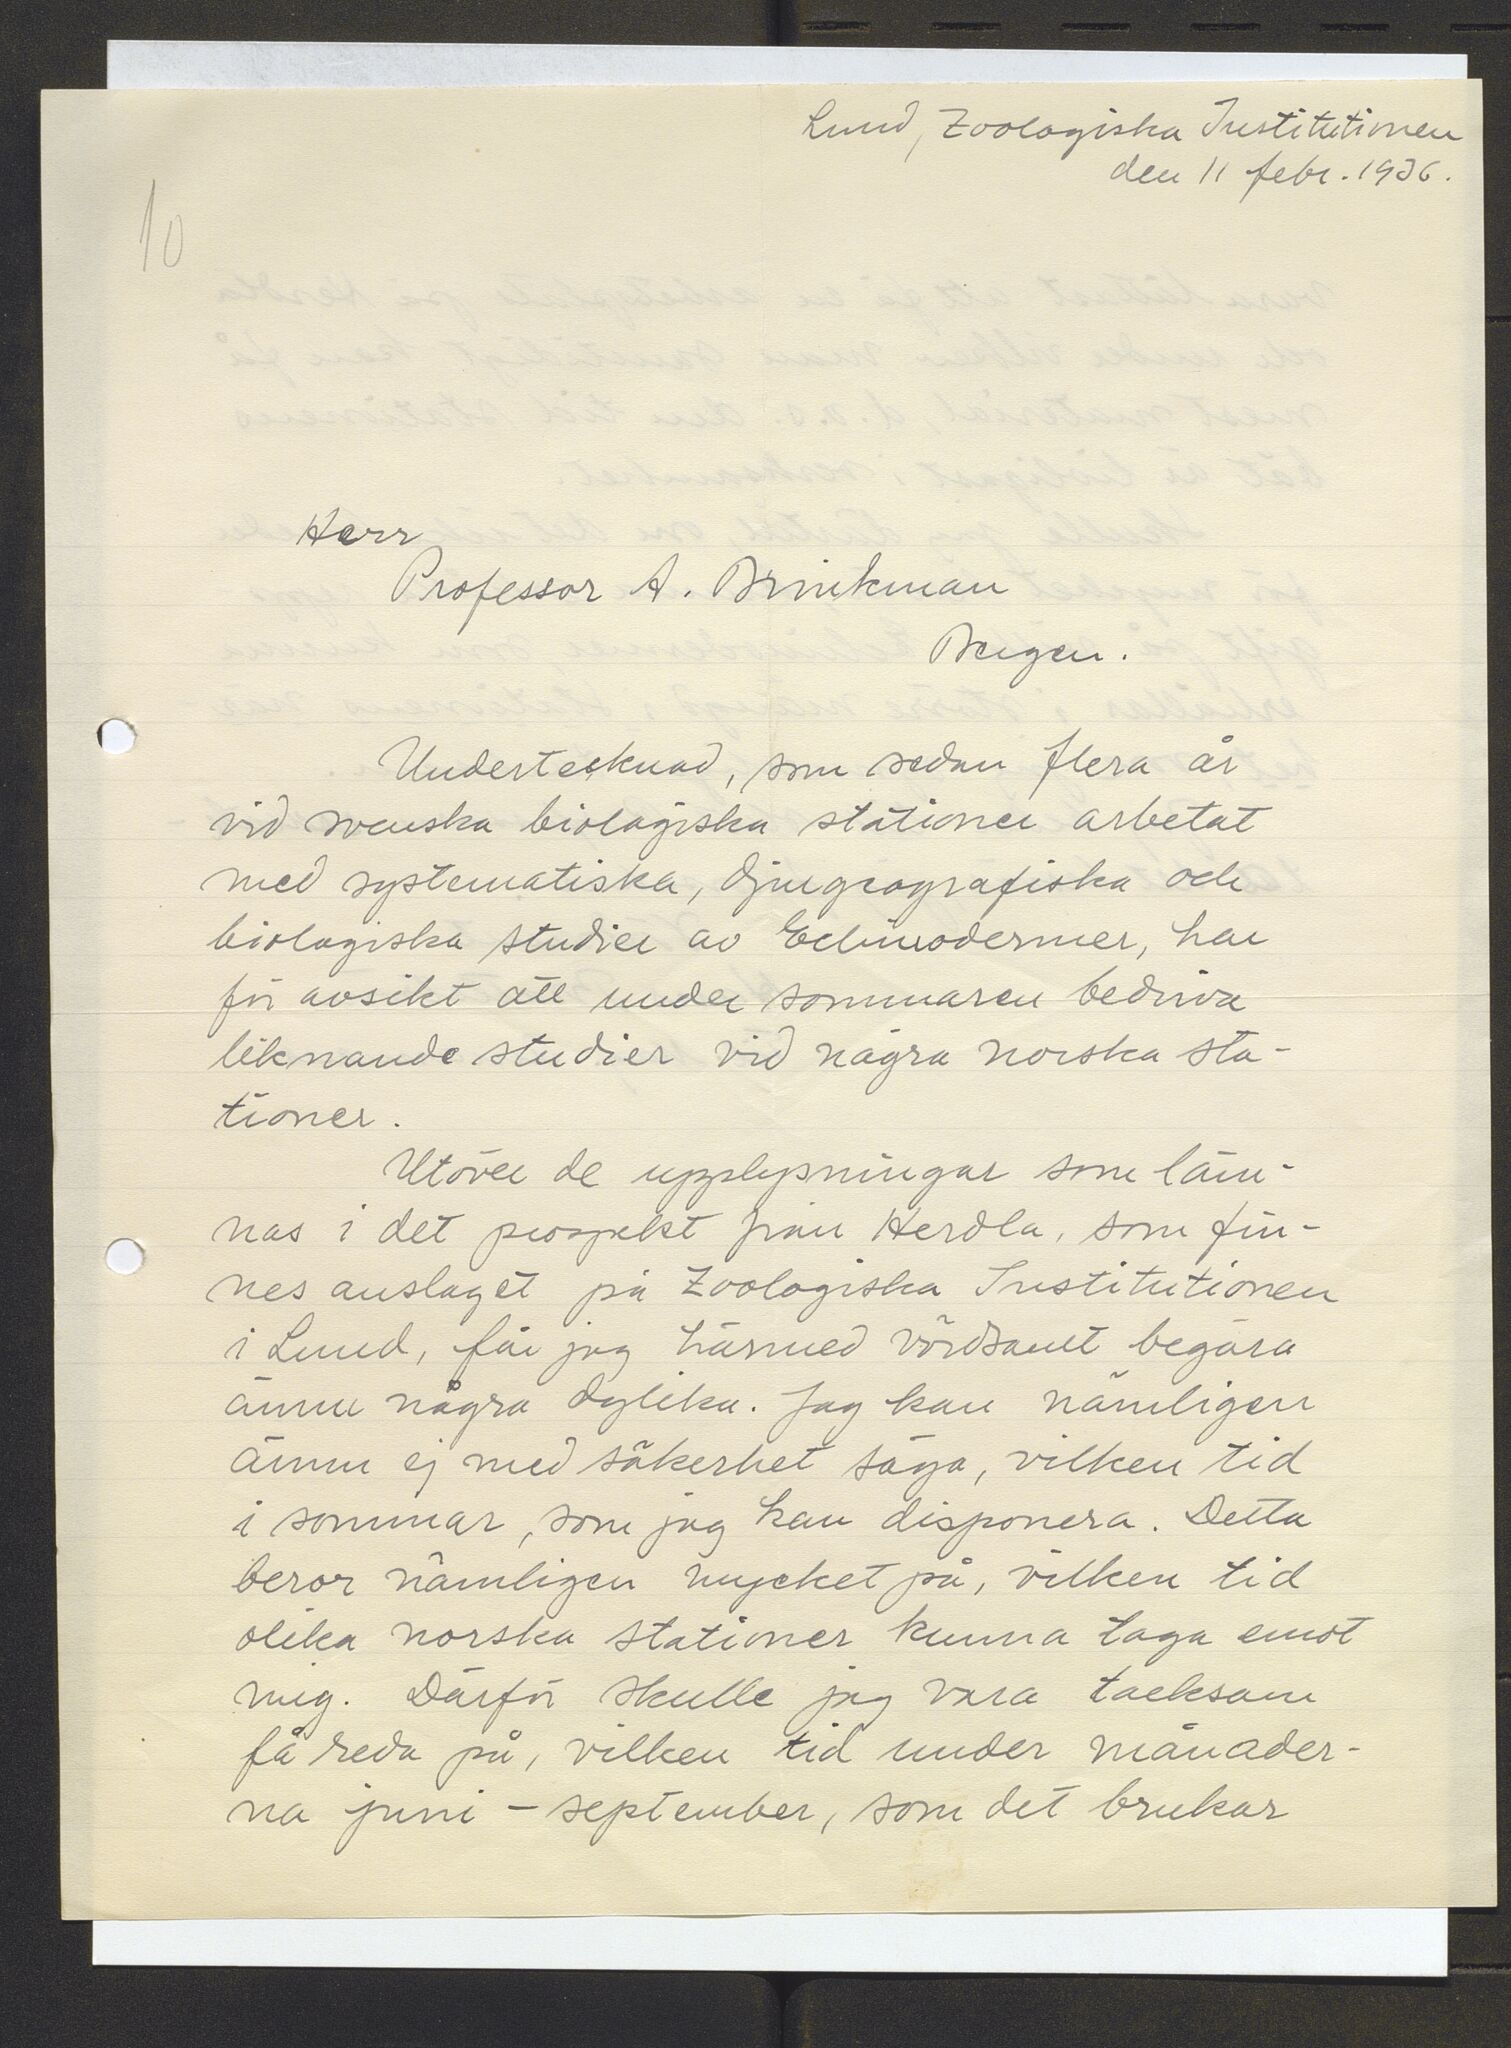 Lund, Zoologiska Institutionen
den 11 febr. 1936.
10
Herr
Professor A. Brinkman
Bergen.
Undertecknad, som sedan flera år
vid svenska biologiska stationer arbetat
med systematiska, djurgeografiska och
biologiska studier av Echinodermer, har
för avsikt att under sommaren bedriva
liknande studier vid några norska sta-
tioner.
Utöver de upplysningar som läm-
nas i det prospekt från Herdla, som fin-
nes anslaget på Zoologiska Institutionen
i Lund, får jag härmed vördsamt begära
ännu några dylika. Jag kan nämligen
ännu ej med säkerhet säga, vilken tid
i sommar, som jag kan disponera. Detta
beror nämligen mycket på, vilken tid
olika norska stationer kunna taga emot
mig. Därför skulle jag vara tacksam
få reda på, vilken tid under månader-
na juni - september, som det brukar